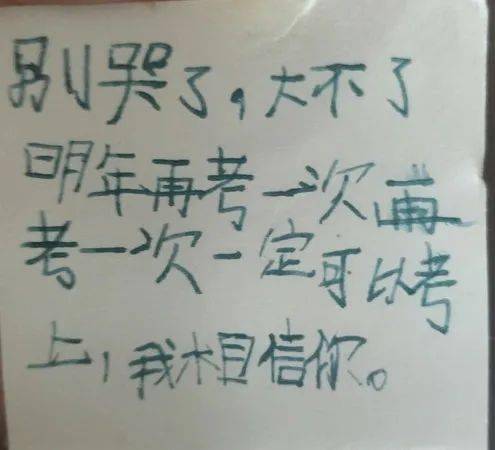 别哭了，大不了
明年再考一次，再
考一次一定可以考
上，我相信你。